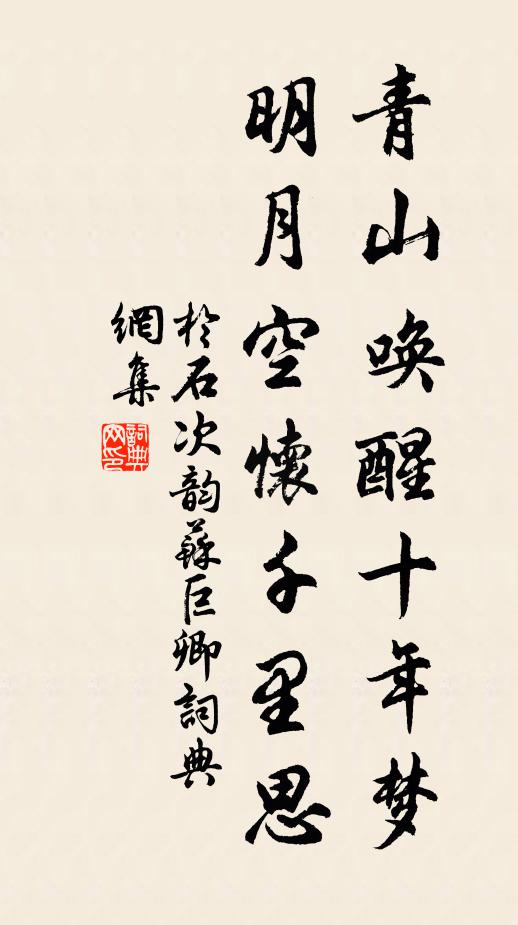 青山唤醒十年梦
明月空懷千里思
於石次韵蘇巨卿詞典
網集
詞典
网印